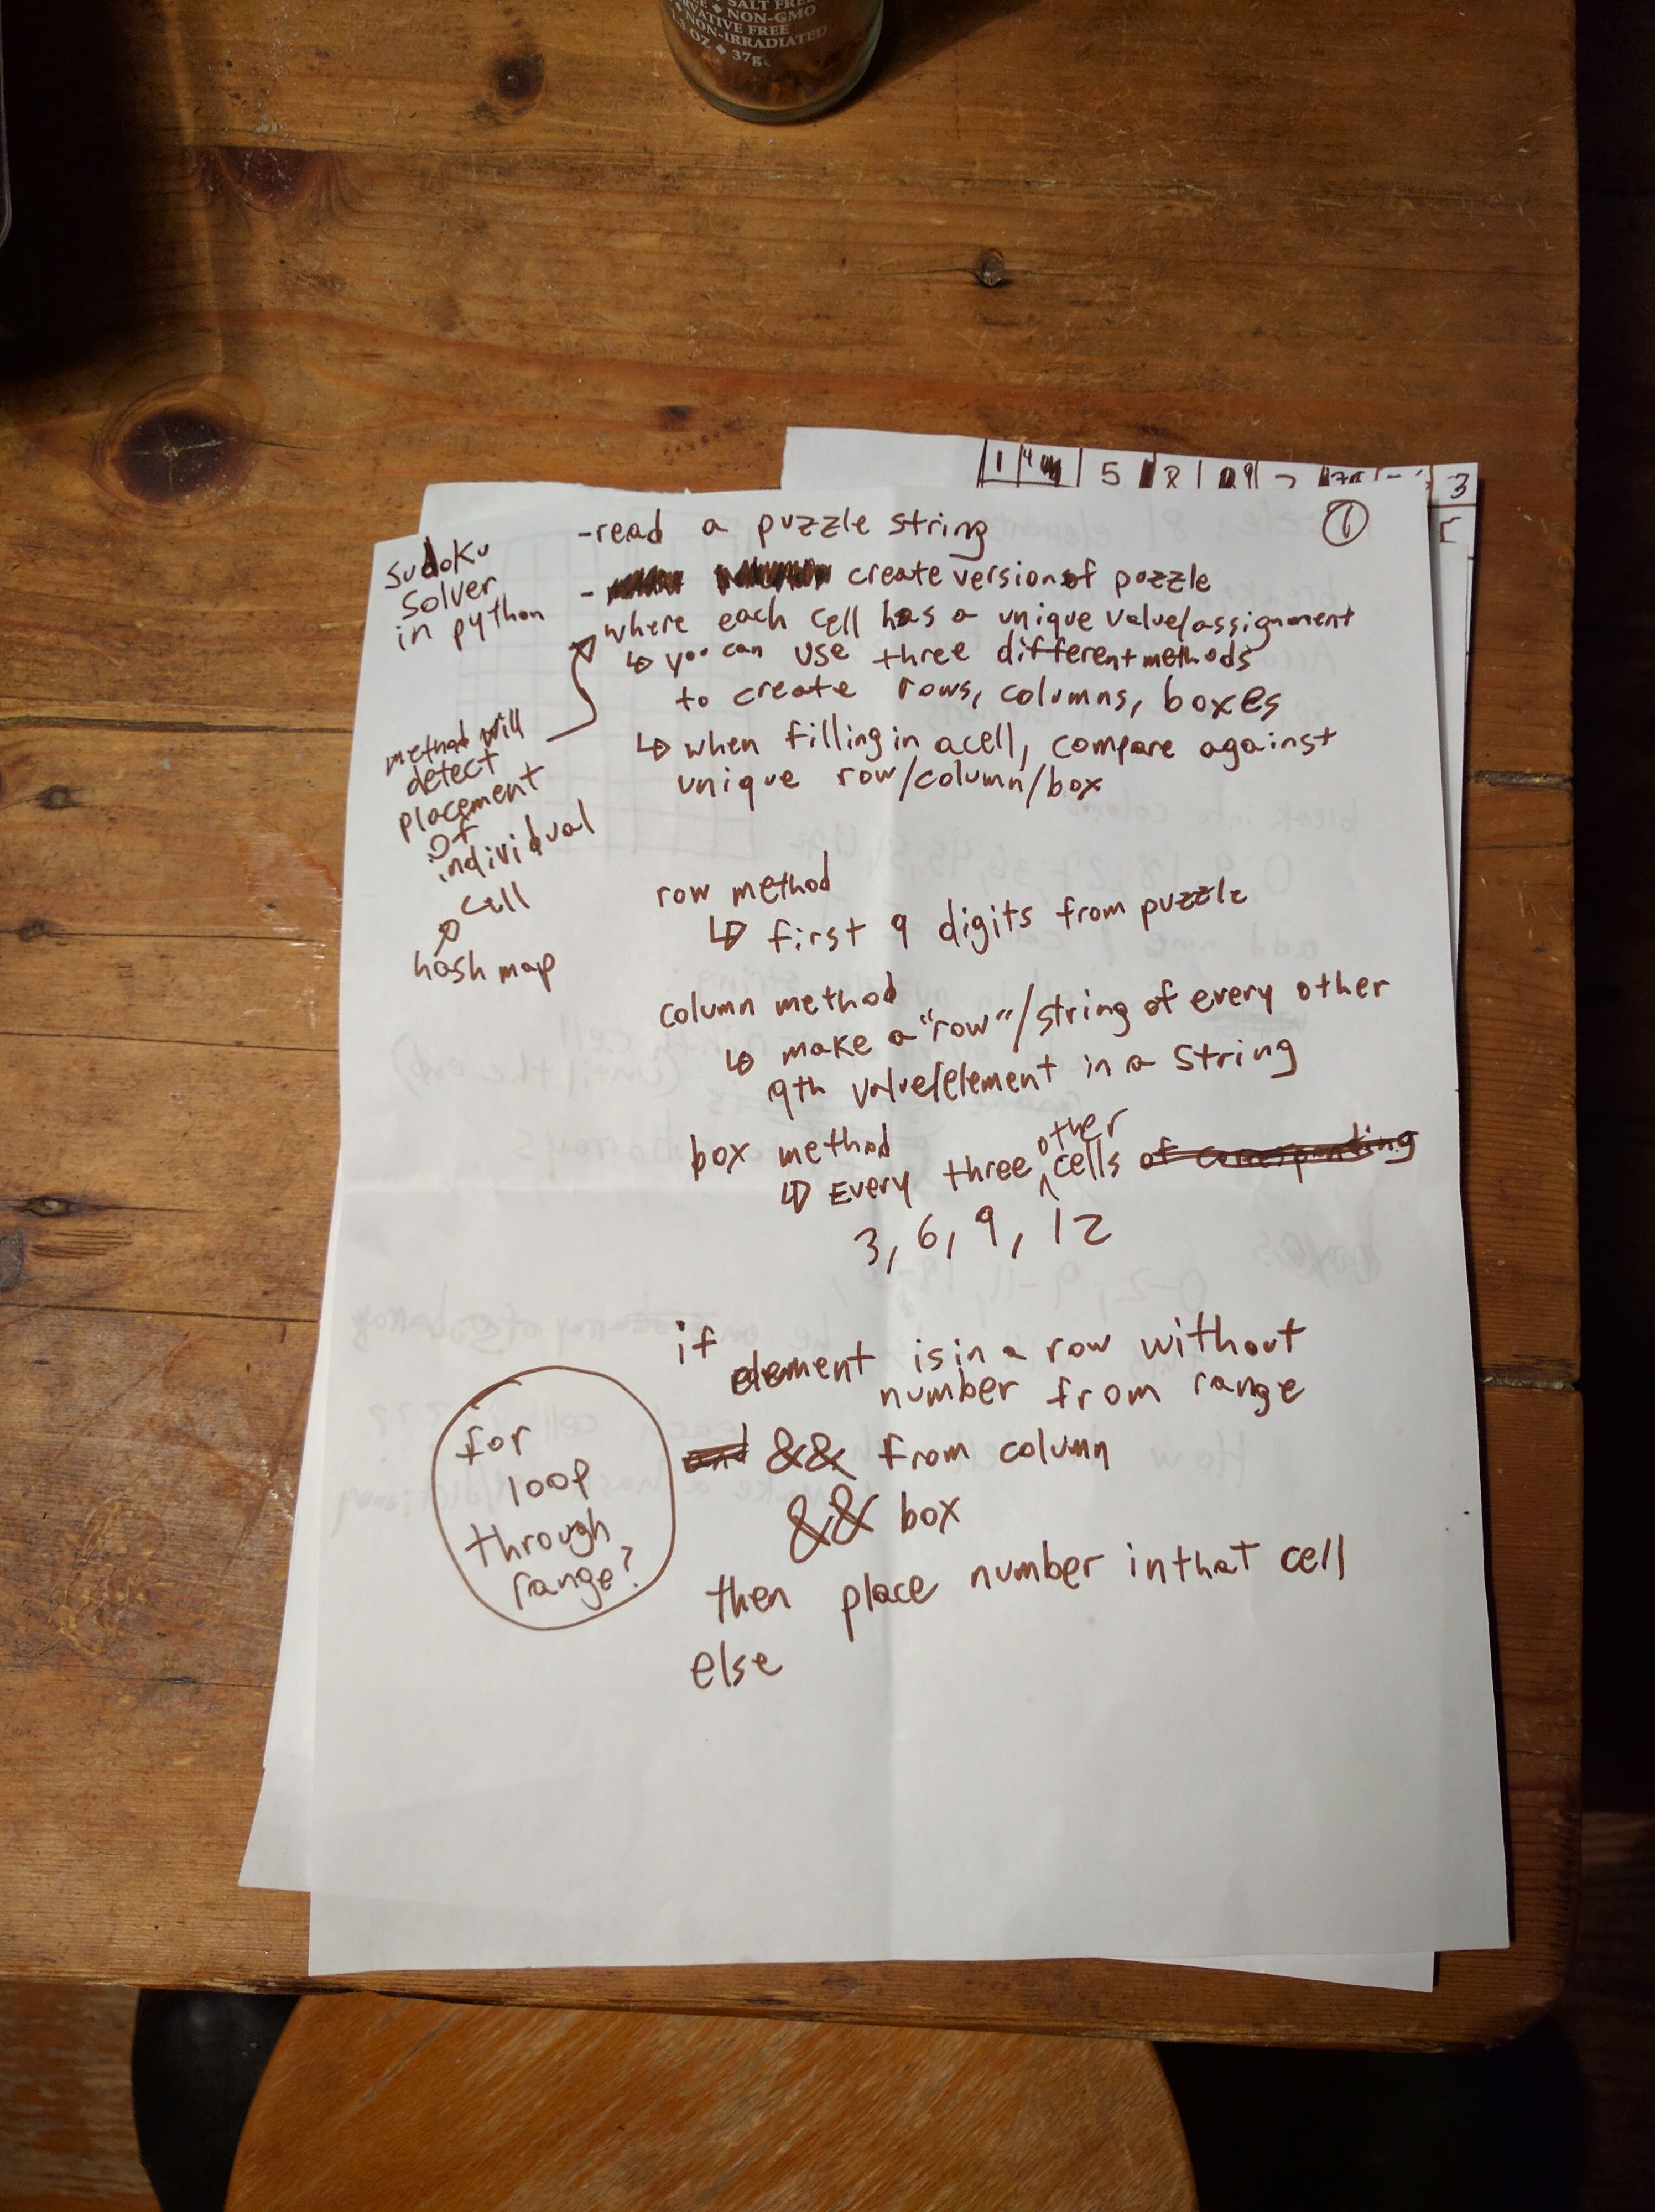 SALT FREE
VE ◆ NON-GMO
RVATIVE FREE
NON-IRRADIATED
OZ ◆ 37g
1
5
8
9
3
①
sudoku
solver
in python
-read a puzzle string
- create version of puzzle
where each cell has a unique value/assignment
↳ you can use three different methods
to create rows, columns, boxes
↳ when filling in a cell, compare against
unique row/column/box
method will
detect
placement
of
individual
cell
hash map
row method
↳ first 9 digits from puzzle
column method
↳ make a "row"/string of every other
9th value/element in a string
box method
↳ Every three other cells of corresponding
3, 6, 9, 12
if element is in a row without
number from range
and && from column
&& box
then place number in that cell
else
for
loop
through
range?